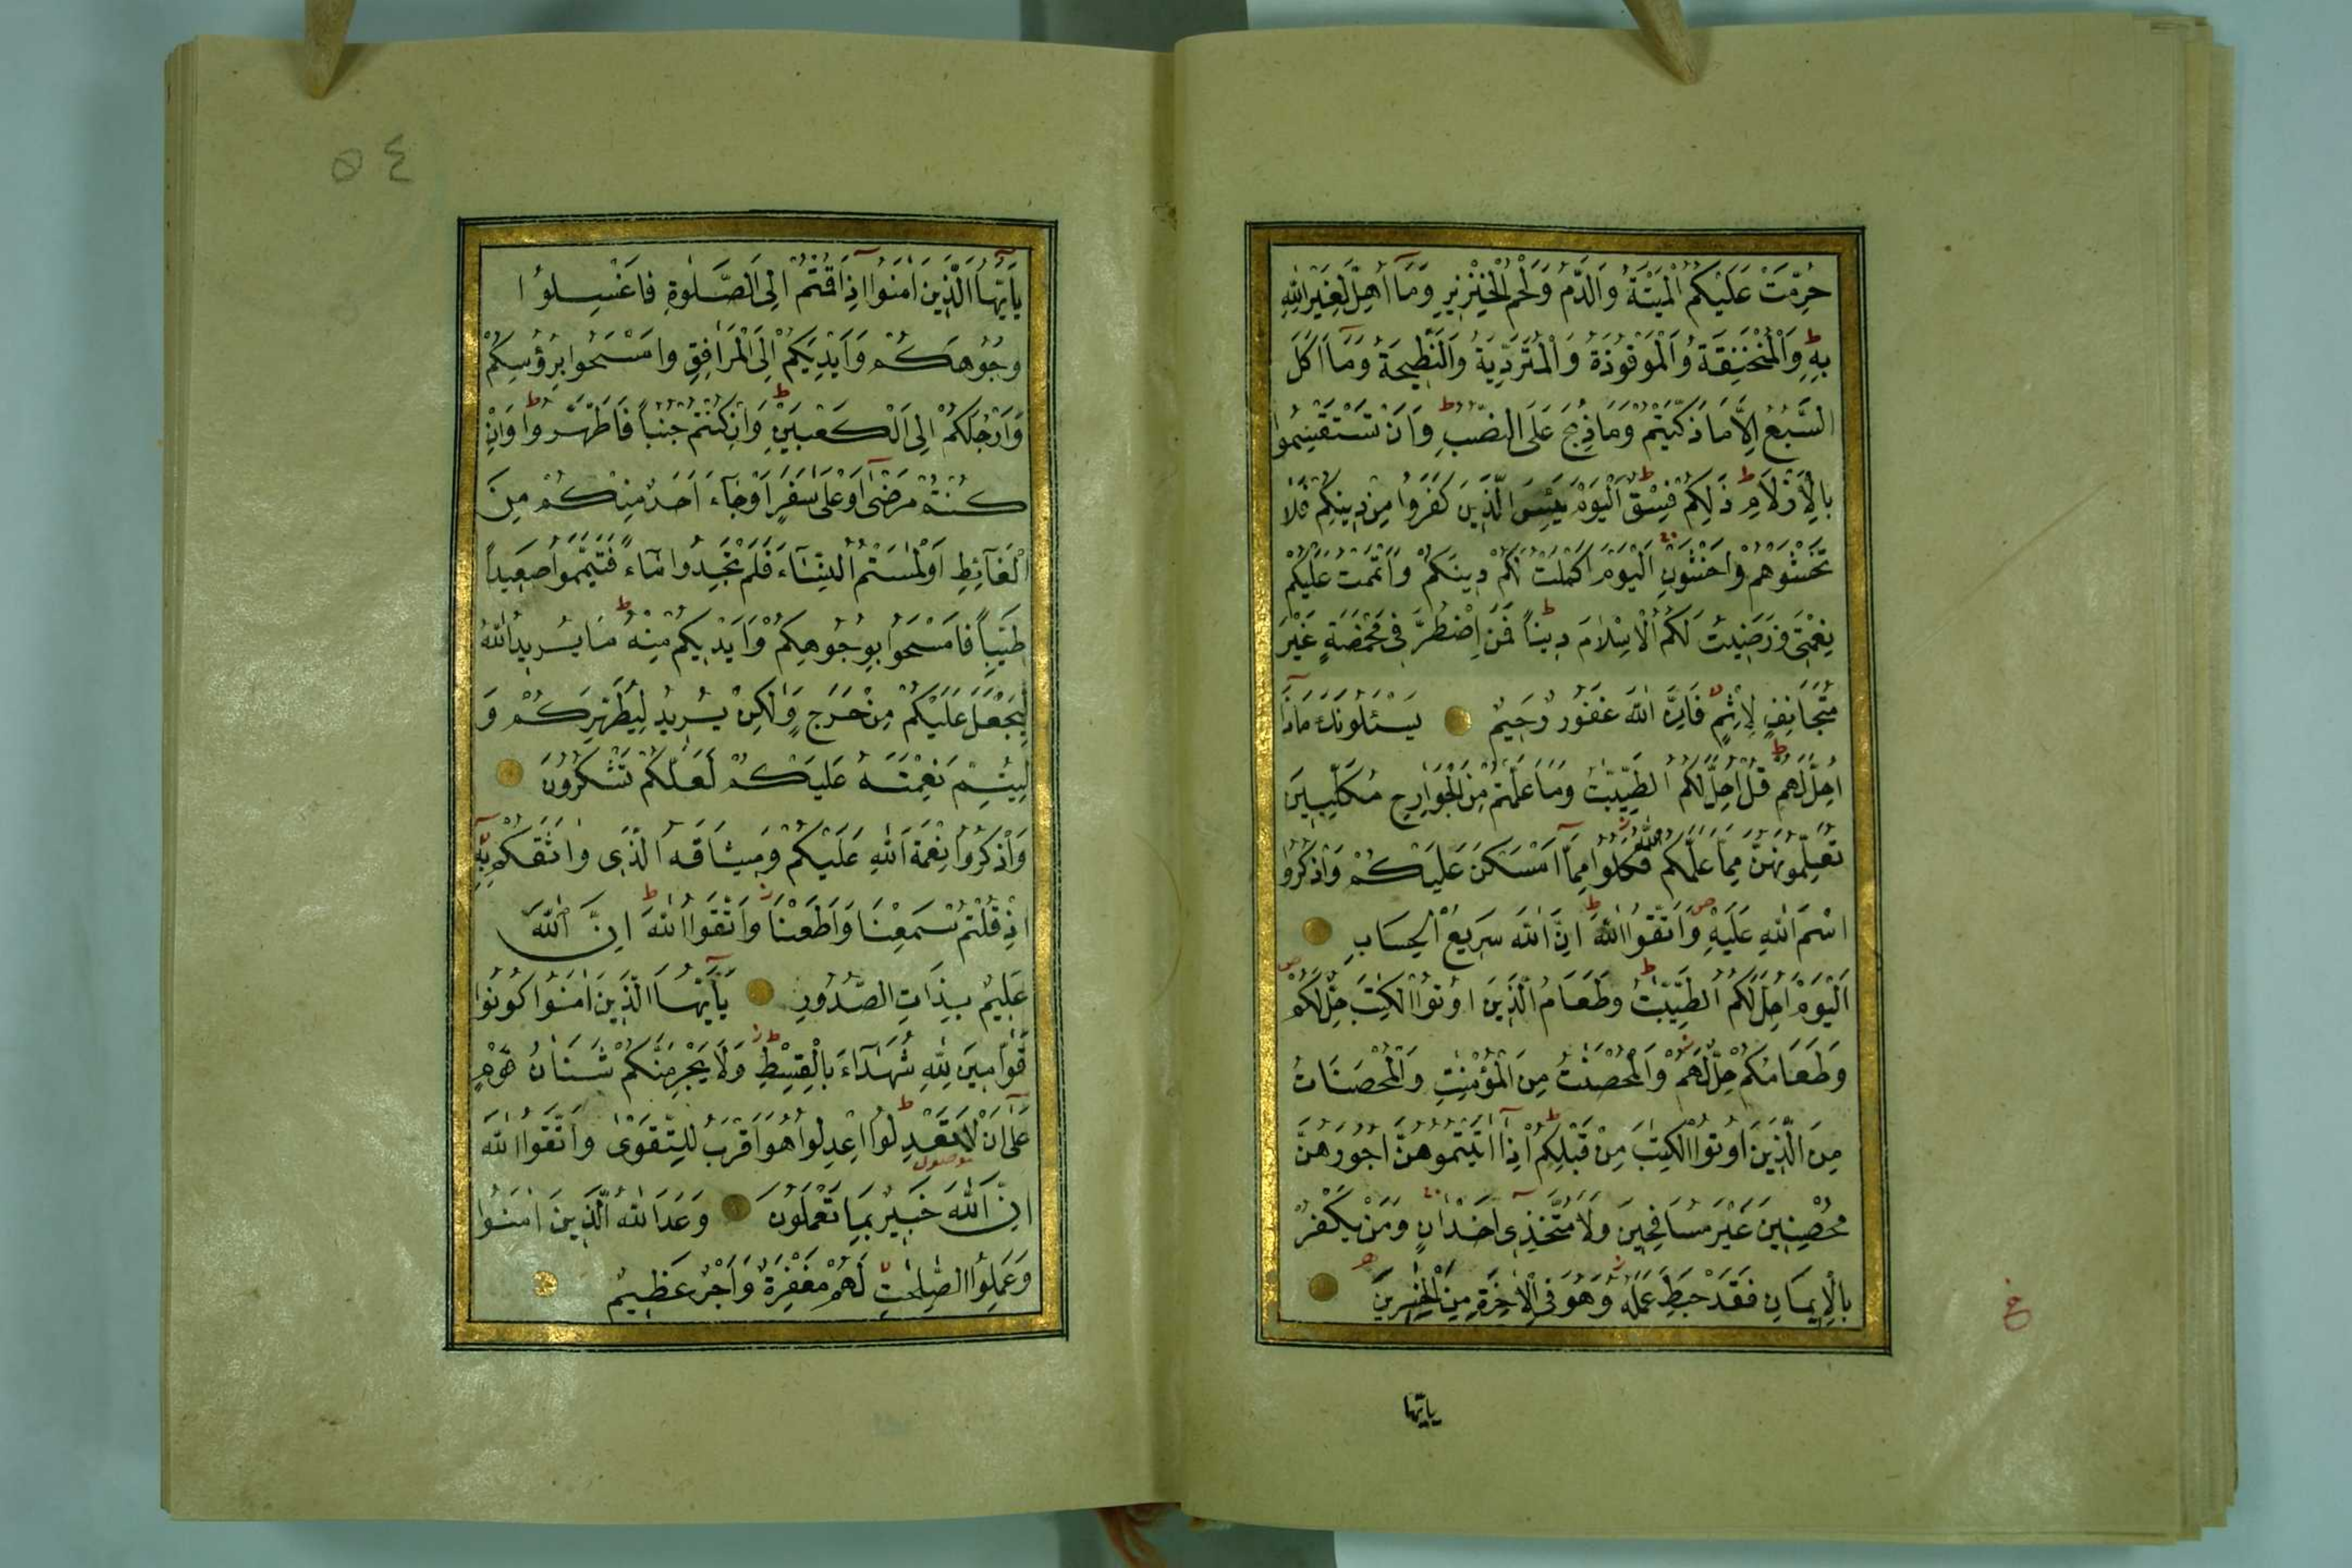 حُرِّمَتْ عَلَيْكُمُ الْمَيْتَةُ وَالدَّمُ وَلَحْمُ الْخِنْزِيرِ وَمَآ اُهِلَّ لِغَيْرِ اللهِ
بِهِ وَالْمُنْخَنِقَةُ وَالْمَوْقُوذَةُ وَالْمُتَرَدِّيَةُ وَالنَّطِيحَةُ وَمَآ اَكَلَ
السَّبُعُ اِلَّا مَا ذَكَّيْتُمْ وَمَا ذُبِحَ عَلَى النُّصُبِ وَاَنْ تَسْتَقْسِمُوا
بِالْاَزْلَامِ ذٰلِكُمْ فِسْقٌ اَلْيَوْمَ يَئِسَ الَّذِينَ كَفَرُوا مِنْ دِينِكُمْ فَلَا
تَخْشَوْهُمْ وَاخْشَوْنِ اَلْيَوْمَ اَكْمَلْتُ لَكُمْ دِينَكُمْ وَاَتْمَمْتُ عَلَيْكُمْ
نِعْمَتِي وَرَضِيتُ لَكُمُ الْاِسْلَامَ دِيناً فَمَنِ اضْطُرَّ فِي مَخْمَصَةٍ غَيْرَ
مُتَجَانِفٍ لِاِثْمٍ فَاِنَّ اللهَ غَفُورٌ رَحِيمٌ يَسْئَلُونَكَ مَاذَآ
اُحِلَّ لَهُمْ قُلْ اُحِلَّ لَكُمُ الطَّيِّبٰتُ وَمَا عَلَّمْتُمْ مِنَ الْجَوَارِحِ مُكَلِّبِينَ
تُعَلِّمُونَهُنَّ مِمَّا عَلَّمَكُمُ اللهُ فَكُلُوا مِمَّآ اَمْسَكْنَ عَلَيْكُمْ وَاذْكُرُوا
اسْمَ اللهِ عَلَيْهِ وَاتَّقُوا اللهَ اِنَّ اللهَ سَرِيعُ الْحِسَابِ
اَلْيَوْمَ اُحِلَّ لَكُمُ الطَّيِّبٰتُ وَطَعَامُ الَّذِينَ اُوتُوا الْكِتٰبَ حِلٌّ لَكُمْ
وَطَعَامُكُمْ حِلٌّ لَهُمْ وَالْمُحْصَنٰتُ مِنَ الْمُؤْمِنٰتِ وَالْمُحْصَنَاتُ
مِنَ الَّذِينَ اُوتُوا الْكِتٰبَ مِنْ قَبْلِكُمْ اِذَآ اٰتَيْتُمُوهُنَّ اُجُورَهُنَّ
مُحْصِنِينَ غَيْرَ مُسَافِحِينَ وَلَا مُتَّخِذِي اَخْدَانٍ وَمَنْ يَكْفُرْ
بِالْاِيمَانِ فَقَدْ حَبِطَ عَمَلُهُ وَهُوَ فِي الْاٰخِرَةِ مِنَ الْخٰسِرِينَ
ياايها
ع
٥٤
يَآاَيُّهَا الَّذِينَ اٰمَنُوآ اِذَا قُمْتُمْ اِلَى الصَّلٰوةِ فَاغْسِلُوا
وُجُوهَكُمْ وَاَيْدِيَكُمْ اِلَى الْمَرَافِقِ وَامْسَحُوا بِرُؤُسِكُمْ
وَاَرْجُلَكُمْ اِلَى الْكَعْبَيْنِ وَاِنْ كُنْتُمْ جُنُباً فَاطَّهَّرُوا وَاِنْ
كُنْتُمْ مَرْضٰٓى اَوْ عَلٰى سَفَرٍ اَوْ جَآءَ اَحَدٌ مِنْكُمْ مِنَ
الْغَآئِطِ اَوْ لٰمَسْتُمُ النِّسَآءَ فَلَمْ تَجِدُوا مَآءً فَتَيَمَّمُوا صَعِيداً
طَيِّباً فَامْسَحُوا بِوُجُوهِكُمْ وَاَيْدِيكُمْ مِنْهُ مَا يُرِيدُ اللهُ
لِيَجْعَلَ عَلَيْكُمْ مِنْ حَرَجٍ وَلٰكِنْ يُرِيدُ لِيُطَهِّرَكُمْ وَ
لِيُتِمَّ نِعْمَتَهُ عَلَيْكُمْ لَعَلَّكُمْ تَشْكُرُونَ
وَاذْكُرُوا نِعْمَةَ اللهِ عَلَيْكُمْ وَمِيثَاقَهُ الَّذِي وَاثَقَكُمْ بِهِٓ
اِذْ قُلْتُمْ سَمِعْنَا وَاَطَعْنَا وَاتَّقُوا اللهَ اِنَّ اللهَ
عَلِيمٌ بِذَاتِ الصُّدُورِ يَآاَيُّهَا الَّذِينَ اٰمَنُوا كُونُوا
قَوَّامِينَ لِلّٰهِ شُهَدَآءَ بِالْقِسْطِ وَلَا يَجْرِمَنَّكُمْ شَنَاٰنُ قَوْمٍ
عَلٰٓى اَنْ لَا تَعْدِلُوا اِعْدِلُوا هُوَ اَقْرَبُ لِلتَّقْوٰى وَاتَّقُوا اللهَ
اِنَّ اللهَ خَبِيرٌ بِمَا تَعْمَلُونَ وَعَدَ اللهُ الَّذِينَ اٰمَنُوا
وَعَمِلُوا الصّٰلِحٰتِ لَهُمْ مَغْفِرَةٌ وَاَجْرٌ عَظِيمٌ